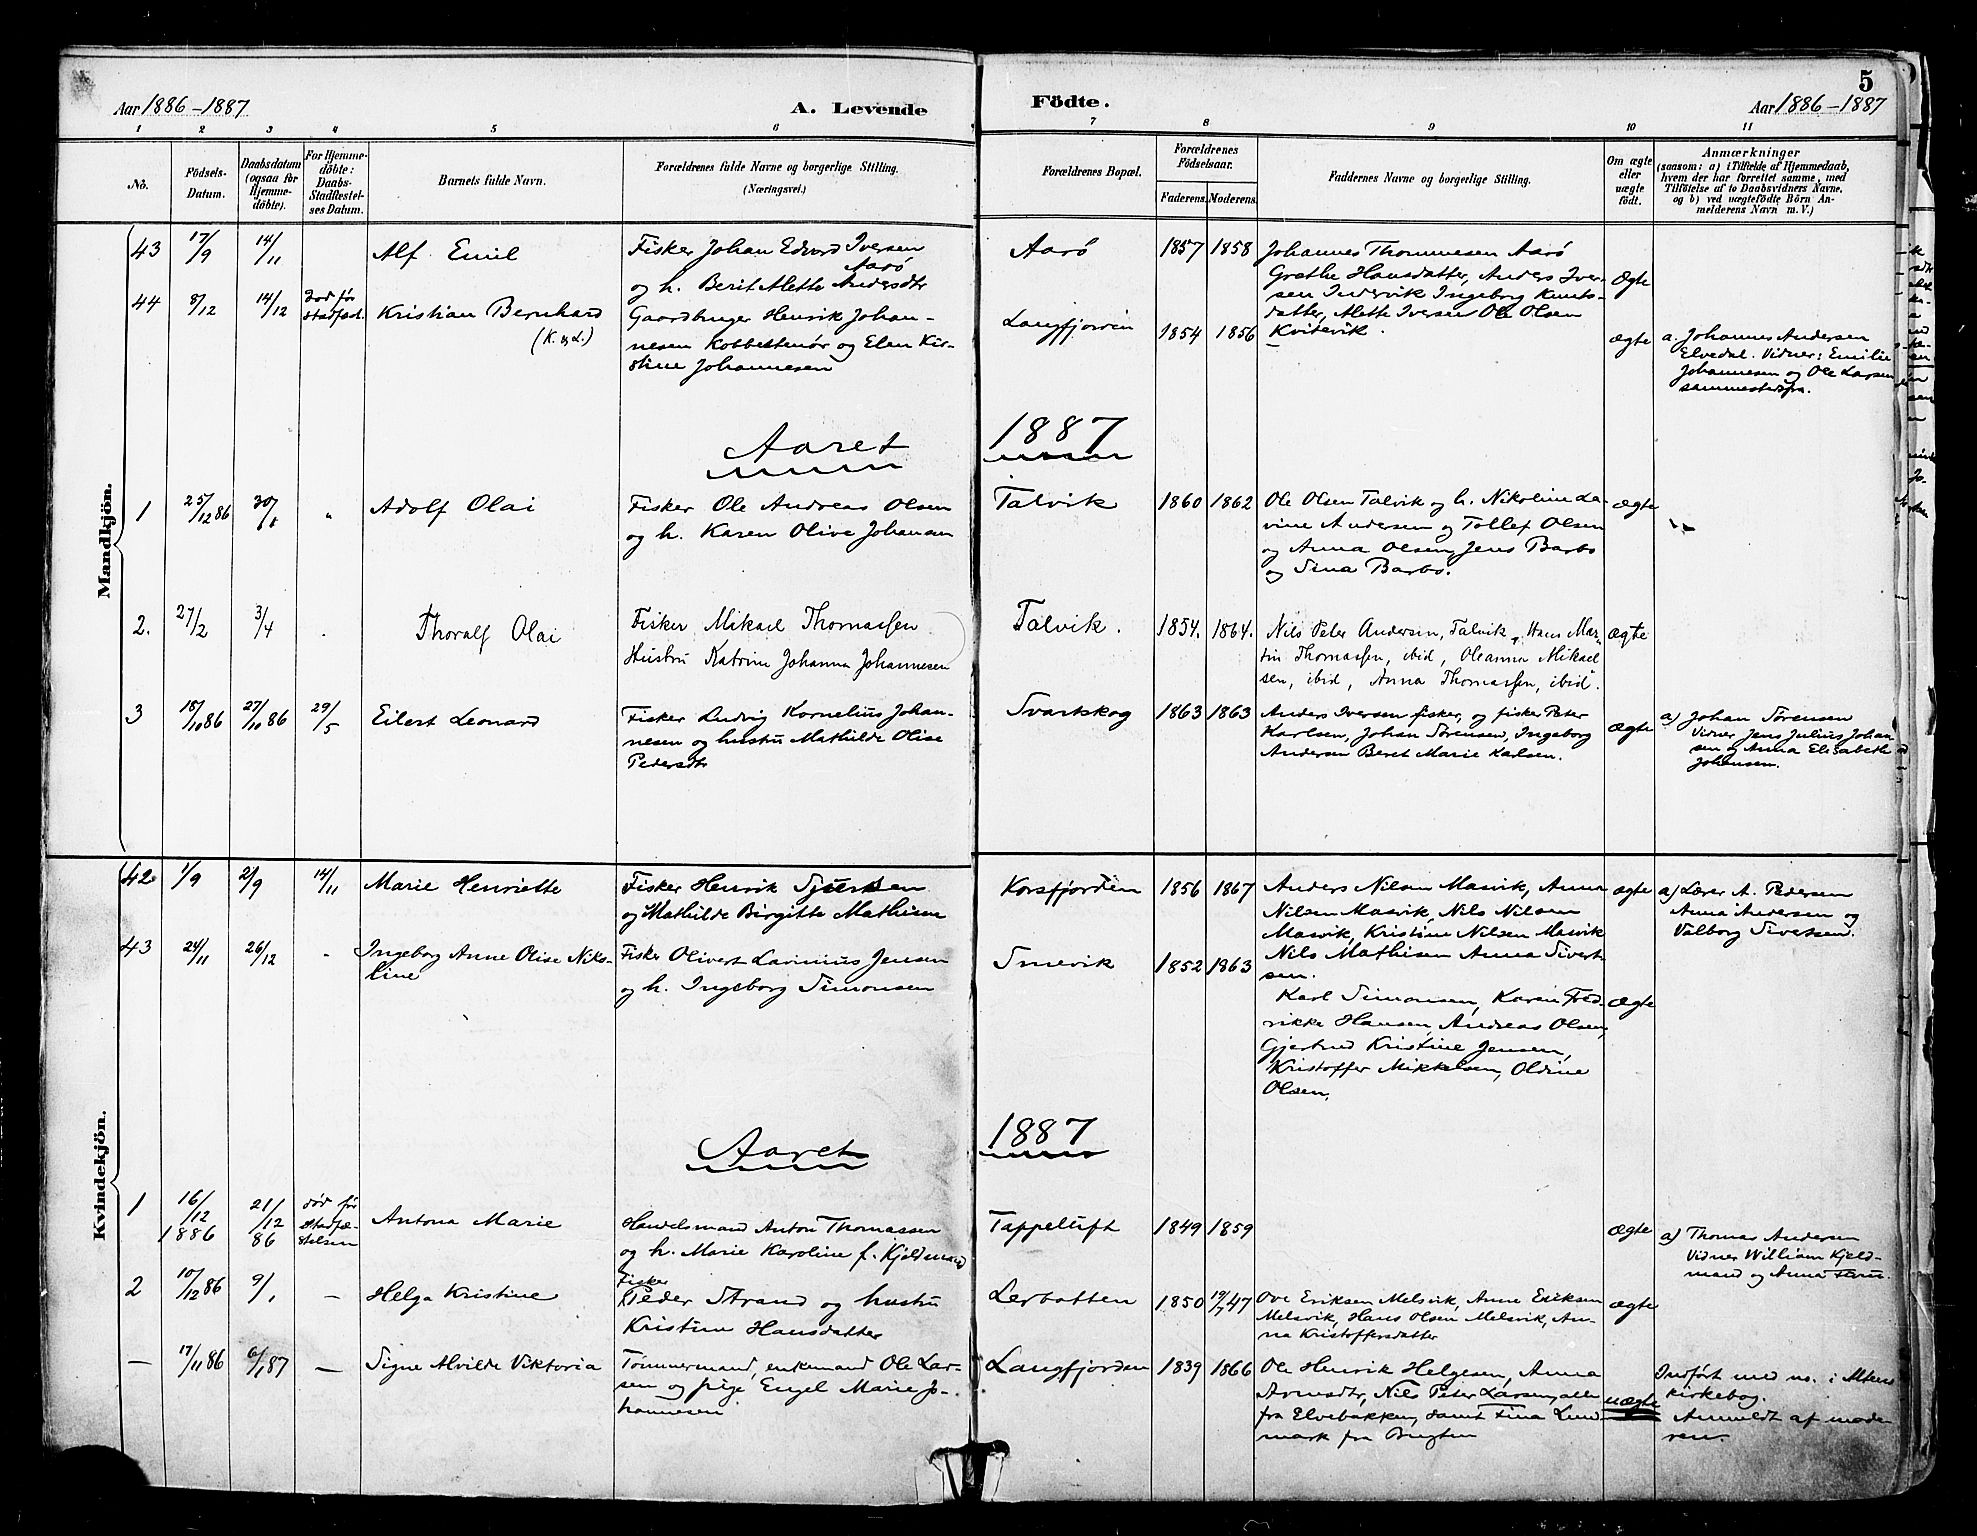 5
Aar 1886-1887
A. Levende
Födte.
Aar 1886-1887
1 2 3 4 5 6 7 8 9 10 11
No.
Födsels-
Datum.
Daabsdatum
(ogsaa for
Hjemme-
döbte).
For Hjemme-
döbte:
Daabs-
Stadfæstel-
ses Datum.
Barnets fulde Navn.
Forældrenes fulde Navne og borgerlige Stilling.
(Næringsvei.)
Forældrenes Bopæl.
Forældrenes
Födselsaar.
Faderens. Moderens.
Faddernes Navne og borgerlige Stilling.
Om ægte
eller
uægte
födt.
Anmærkninger
(saasom: a) i Tilfælde af Hjemmedaab,
hvem der har forrettet samme, med
Tilföielse af to Daabsvidners Navne,
og b) ved uægtefödte Börn An-
melderens Navn m. V.)
Mandkjön.
43
17/9
14/11
Alf Emil
Fisker Johan Edvard Iversen
Aarö
og h. Berit Alette Andersdtr
Aarö
1857 1858
Johannes Thommesen Aarö
Grethe Hansdatter, Anders Iver-
sen Indervik Ingeborg Knuts-
datter, Alette Iversen Ole Olsen
Kvitevik.
Ægte
44
8/12
14/12
død før
stadfæst.
Kristian Bernhard
(K. og L.)
Gaardbruger Henrik Johan-
nesen Kobbettenör og Elen Kir-
stine Johannesen
Langfjorden
1854 1856
—
ægte
a. Johannes Andersen
Elvedal. Vidner: Emilie
Johannesen og Ole Larsen
sammestedsfra.
Aaret 1887
1
25/12 86
30/1
"
Adolf Olai
Fisker Ole Andreas Olsen
og h. Karen Olive Johansen
Talvik
1860 1862
Ole Olsen Talvik og h. Nikoline La-
vine Andersen og Tollef Olsen
og Anna Olsen, Jens Barbo
og Sina Barbo.
ægte
"
2.
27/2
3/4
Thoralf Olai
Fisker Mikael Thomassen
Hustru Katrine Johanna Johannesen
Talvik.
1854. 1864.
Nils Peter Andersen, Talvik, Hans Mar-
tin Thomassen, ibid, Oleanna Mikael
sen, ibid, Anna Thomassen, ibid.
ægte
3
18/10 86
27/10 86
29/5
Eilert Leonard
Fisker Ludvig Kornelius Johan-
nesen og hustru Mathilde Olise
Pedersdtr
Svartskog
1863 1863
Anders Iversen fisker, og fisker Peter
Karlsen, Johan Sörensen, Ingeborg
Andersen Beret Marie Karlsen.
ægte
a) Johan Sörensen
Vidner Jens Julius Johan
sen og Anna Elisabeth
Johansen.
Kvindekjön.
42
1/9
2/9
14/11
Marie Henriette
Fisker Henrik Sjursen
og Mathilde Birgitte Mathisen
Korsfjorden
1856 1867
Anders Nilsen Masvik, Anna
Nilsen Masvik, Nils Nilsen
Masvik, Kristine Nilsen Masvik
Nils Mathisen Anna Sivert-
sen.
ægte
a) Lærer A. Pedersen
Anna Andersen og
Valborg Sivertsen.
43
24/11
26/12
"
Ingeborg Anne Olise Niko-
line
Fisker Olivert Larinius Jensen
og h. Ingeborg Simonsen
Smevik
1852 1863
Karl Simonsen, Karen Fred-
rikke Hansen, Andreas Olsen,
Gjertrud Kristine Jensen,
Kristoffer Mikkelsen, Oldine
Olsen,
ægte
Aaret 1887
1
16/12
1886
21/12
86
død før
stadfæ-
stelsen
Antona Marie
Handelsmand Anton Thomassen
og h. Marie Karoline f. Kjeldsmand
Tappeluft
1849 1859
ægte
a) Thomas Andersen
Vidner William Kjeld-
mand og Anna
2
10/12 86
9/1
—
Helga Kristine
Fisker
Peder Strand og hustru
Kristine Hansdatter
Lerbotten
1850 19/7 47
Ove Eriksen Melsvik, Anne Eriksen
Melsvik, Hans Olsen Melsvik, An-
na Kristoffersdatter
ægte
—
17/11 86
6/1 87
—
Signe Alvilde Viktoria
Tömmermand, enkemand Ole Lar-
sen og pige Engel Marie Jo-
hannesen
Langfjorden
1839 1866
Ole Henrik Helgesen, Anna
Arnesdtr, Nils Peter Larsen, alle
fra Elvebakken, samt Tina Lund
mark fra Bugten
uægte
Indført med no. i Altens
kirkebog.
Anmeldt af mode-
ren.